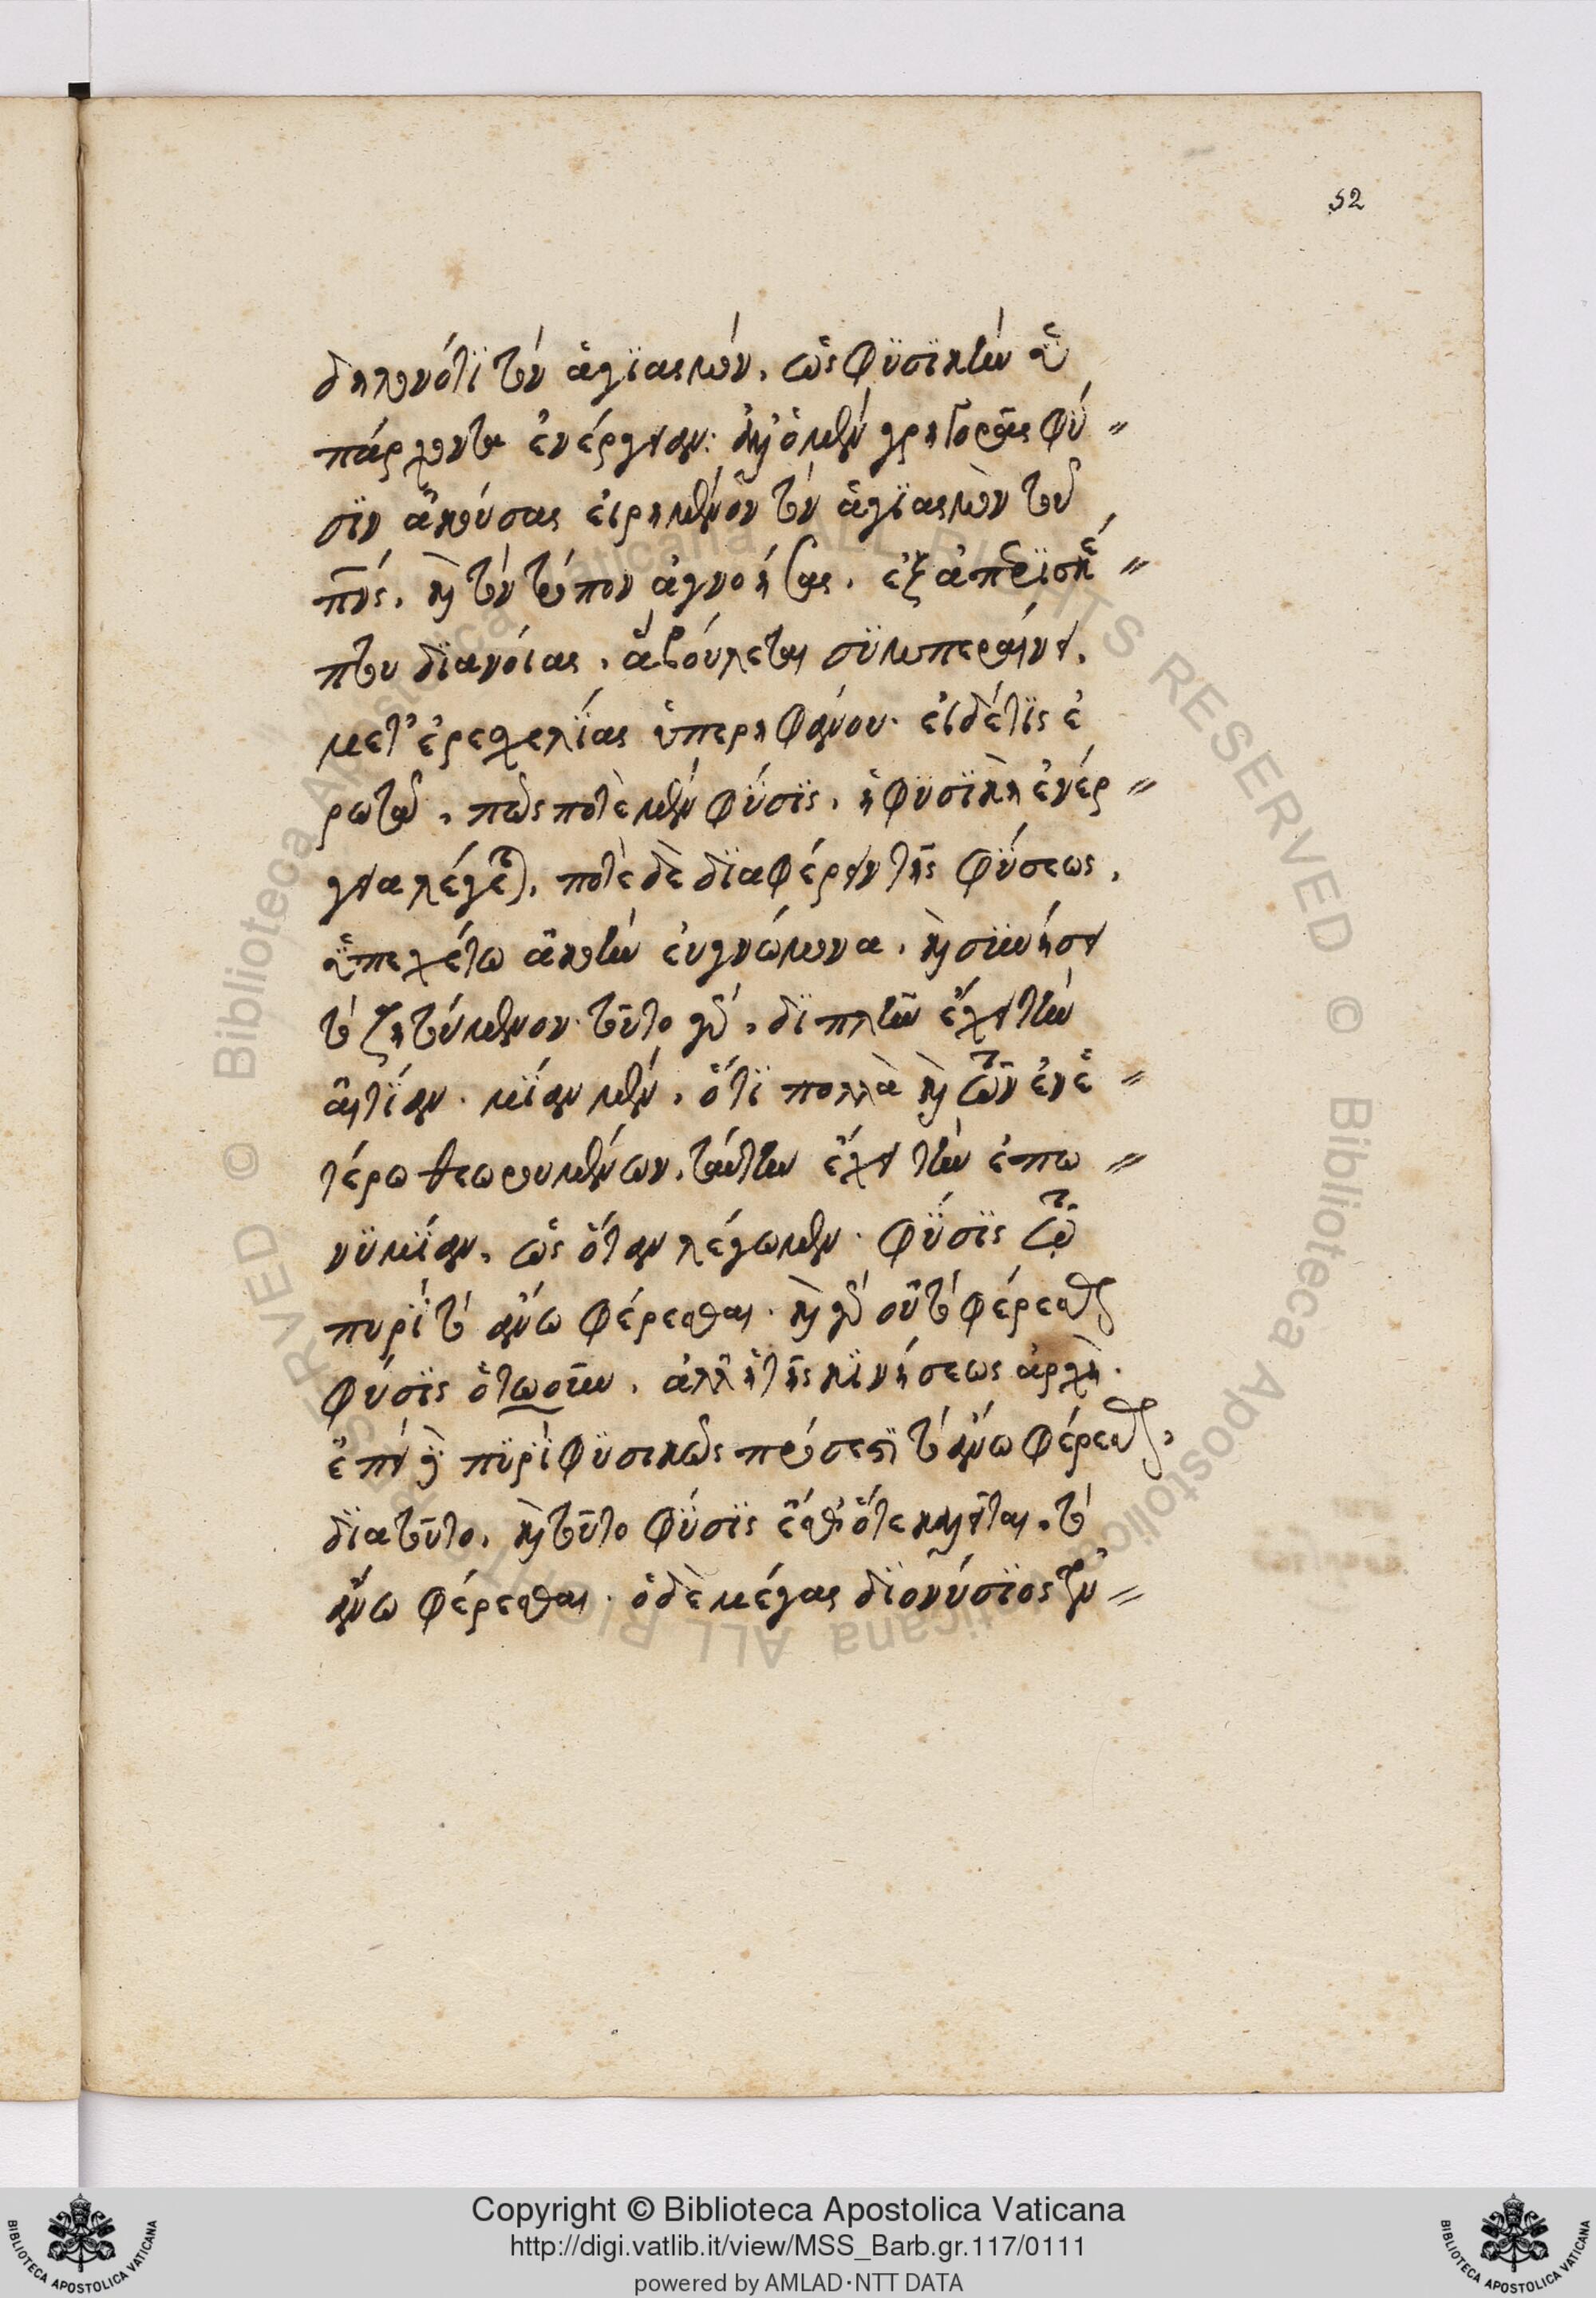 52
δηλονότι τὸν ἁγιασμόν, ὡς φυσικὴν ὑ
πάρχοντα ἐνέργειαν· καὶ ὁ μὲν γρηγορᾶς φύ〃
σιν ἀκούσας εἰρημένον τὸν ἁγιασμὸν τοῦ
πνς, καὶ τὸν τρόπον ἀγνοήσας, ἐξ ἀπερισκέ〃
πτου διανοίας, ἃ βούλεται συμπεραίνει,
μετ' ἐρεσχελίας ὑπερηφάνου· εἰ δέ τις ἐ
ρωτᾷ, πῶς ποτὲ μὲν φύσις, ἡ φυσικὴ ἐνέρ〃
γεια λέγεται, ποτὲ δὲ διαφέρειν τῆς φύσεως,
ὑπεχέτω ἀκοὴν εὐγνώμονα, καὶ συνήσει
τὸ ζητούμενον· τοῦτο γὰρ, διπλῆν ἔχει τὴν
αἰτίαν· μίαν μὲν, ὅτι πολλὰ καὶ τῶν ἐν ἑ〃
τέρῳ θεωρουμένων, ταύτην ἔχει τὴν ἐπω〃
νυμίαν, ὡς ὅταν λέγωμεν· φύσις τῷ
πυρὶ τὸ ἄνω φέρεσθαι· καὶ γὰρ οὐ τὸ φέρεσθαι
φύσις ὄντως ἐστὶν, ἀλλ' ἡ τῆς κινήσεως ἀρχή·
ἐπεὶ δὲ πυρὶ φυσικῶς πρόσεστι τὸ ἄνω φέρεσθαι,
διατοῦτο, καὶ τοῦτο φύσις ἔσθ' ὅτε καλεῖται, τὸ
ἄνω φέρεσθαι· ὁ δὲ μέγας διονύσιος ἐν〃
Copyright © Biblioteca Apostolica Vaticana
http://digi.vatlib.it/view/MSS_Barb.gr.117/0111
powered by AMLAD·NTT DATA